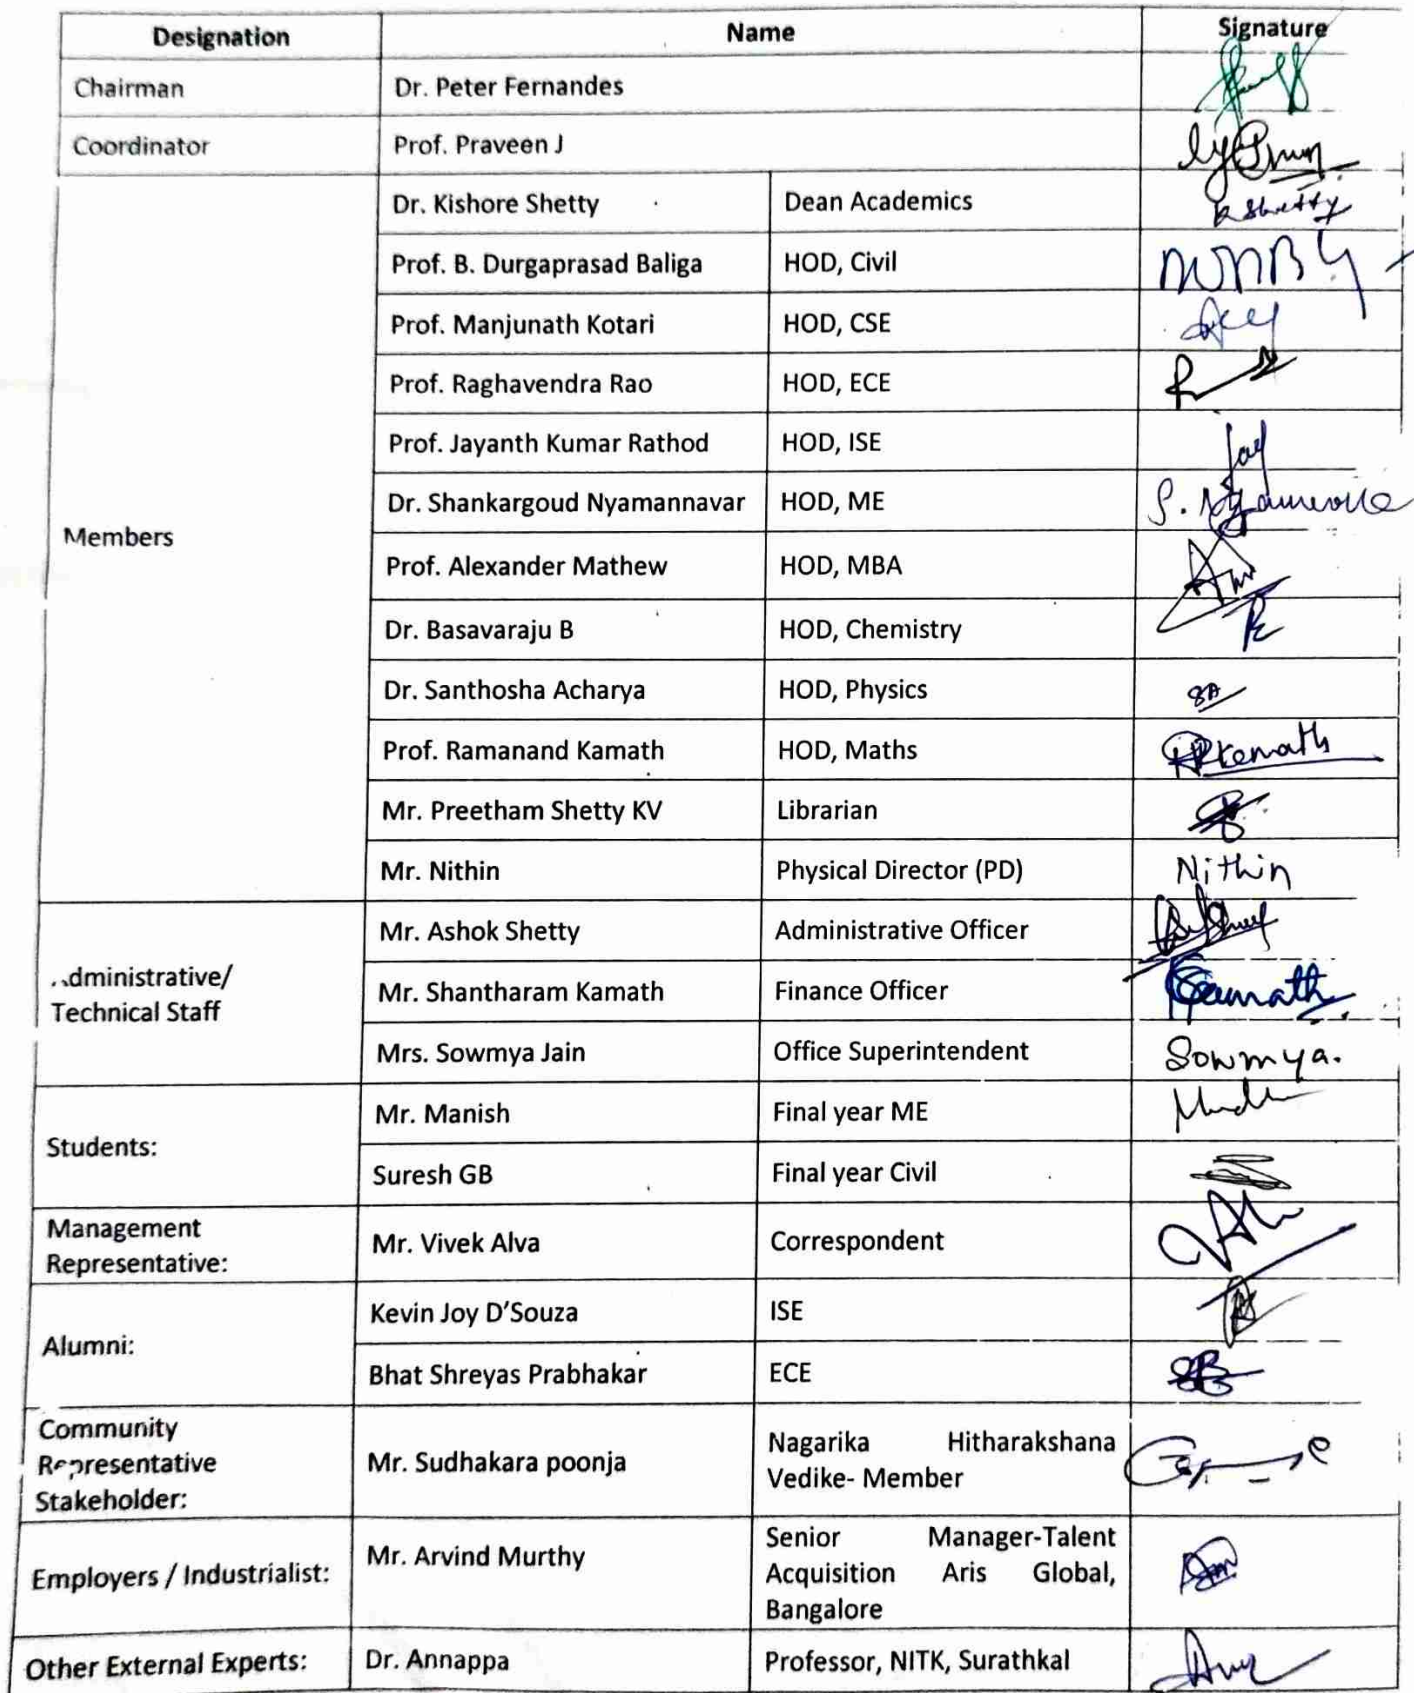 Designation Name Signature
Chairman Dr. Peter Fernandes
Coordinator Prof. Praveen J
Members
Dr. Kishore Shetty Dean Academics K Shetty
Prof. B. Durgaprasad Baliga HOD, Civil
Prof. Manjunath Kotari HOD, CSE
Prof. Raghavendra Rao HOD, ECE
Prof. Jayanth Kumar Rathod HOD, ISE Jay
Dr. Shankargoud Nyamannavar HOD, ME
Prof. Alexander Mathew HOD, MBA
Dr. Basavaraju B HOD, Chemistry
Dr. Santhosha Acharya HOD, Physics SA
Prof. Ramanand Kamath HOD, Maths
Mr. Preetham Shetty KV Librarian
Mr. Nithin Physical Director (PD) Nithin
.dministrative/
Technical Staff
Mr. Ashok Shetty Administrative Officer
Mr. Shantharam Kamath Finance Officer
Mrs. Sowmya Jain Office Superintendent Sowmya.
Students:
Mr. Manish Final year ME
Suresh GB Final year Civil
Management
Representative:
Mr. Vivek Alva Correspondent
Alumni:
Kevin Joy D'Souza ISE
Bhat Shreyas Prabhakar ECE
Community
Representative
Stakeholder:
Mr. Sudhakara poonja
Nagarika Hitharakshana
Vedike- Member
Employers / Industrialist:
Mr. Arvind Murthy
Senior Manager-Talent
Acquisition Aris Global,
Bangalore
Other External Experts: Dr. Annappa Professor, NITK, Surathkal